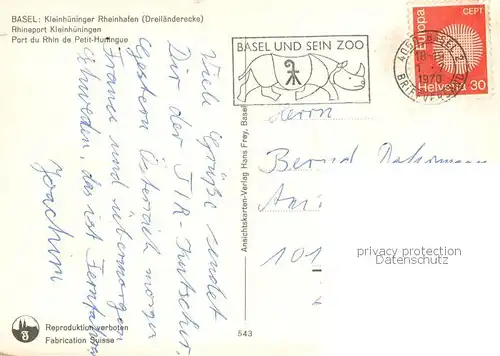 BASEL: Kleinhüninger Rheinhafen (Dreiländerecke)
Rhineport Kleinhüningen
Port du Rhin de Petit-Huningue
BASEL UND SEIN ZOO
Europa
CEPT
Helvetia 30
1970
BRIEFVERSAND
Viele Grüße sendet
Dir der TIR-Kutscher.
Gestern Österreich morgen
France und übermorgen
Schweden, das ist Fernfahren
Joachim
Ansichtskarten-Verlag Hans Frey, Basel
Herrn
Bernd
101
privacy protection
Datenschutz
Reproduktion verboten
Fabrication Suisse
543